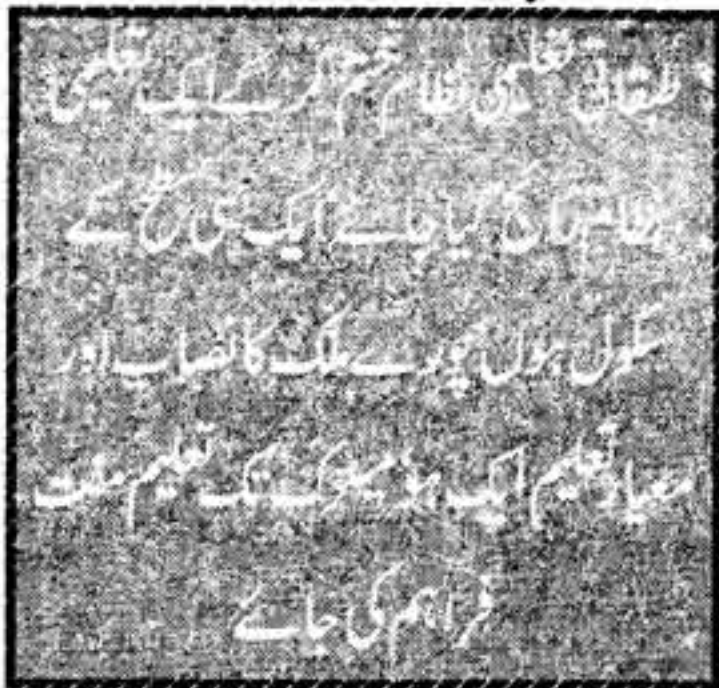 طبقاتی تعلیمی نظام ختم کر کے ایک تعلیمی
نظام رائج کیا جائے، ایک ہی سطح کے
سکول ہوں، پورے ملک کا نصاب اور
معیار تعلیم ایک ہو، میٹرک تک تعلیم مفت
فراہم کی جائے